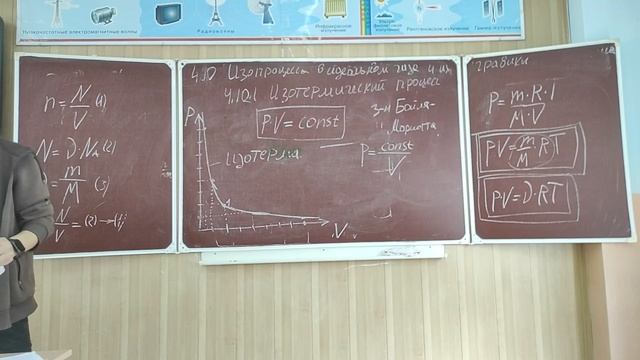 Низкочастотные электромагнитные волны
Радиоволны
Инфракрасное излучение
Рентгеновское излучение
Гамма-излучение
n = N/V (1)
N = υ·N_A (2)
= m/M (3)
N/V = (2) →
4.10 Изопроцессы в идеальном газе и их
графики
4.10.1 Изотермический процесс
PV = const
з-н Бойля-
Мариотта
P = const/V
изотерма
P
V
P = m·R·T/M·V
PV = m/M RT
PV = υ·RT